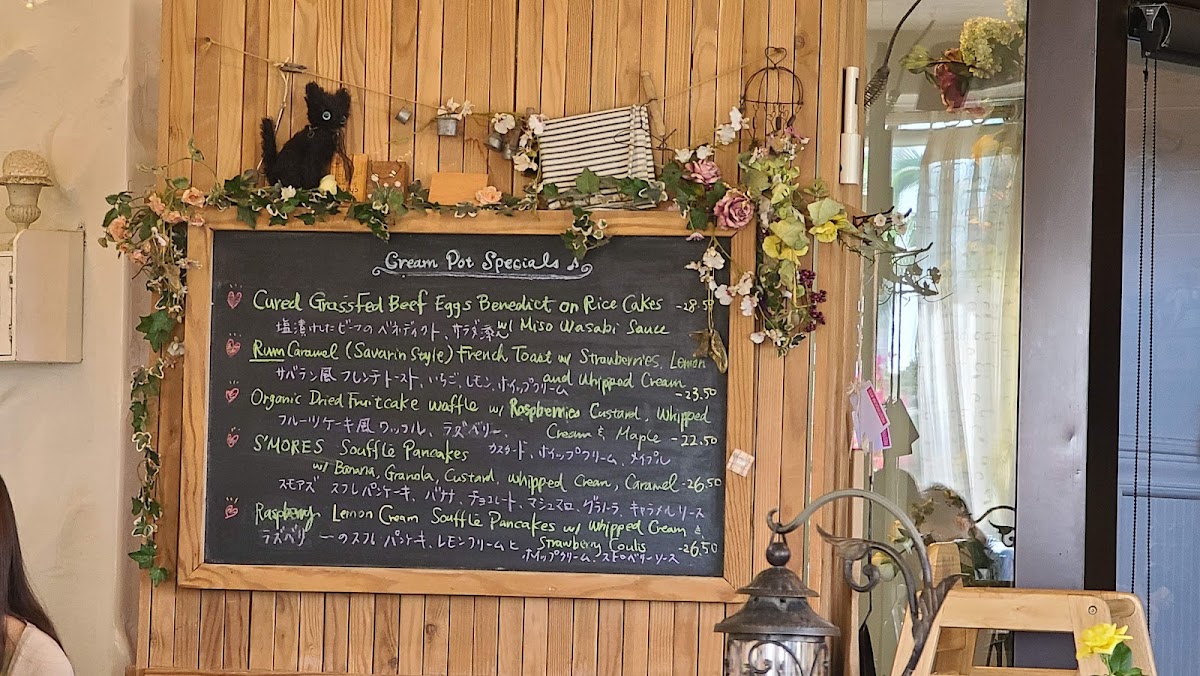 Cream Pot Specials
Cured Grassfed Beef Eggs Benedict on Rice Cakes -28.50
塩漬けたビーフのベネディクト、サラダ添え w/ Miso Wasabi Sauce
Rum Caramel (Savarin Style) French Toast w/ Strawberries, Lemon
サバラン風フレンチトースト、いちご、レモン、ホイップクリーム and Whipped Cream
-23.50
Organic Dried Fruitcake Waffle w/ Raspberries Custard, Whipped
フルーツケーキ風ワッフル、ラズベリー、 Cream & Maple -22.50
S'MORES Soufflé Pancakes カスタード、ホイップクリーム、メイプル
w/ Banana, Granola, Custard, Whipped Cream, Caramel -26.50
スモアズ スフレパンケーキ、バナナ、チョコレート、マシュマロ、グラノーラ、キャラメルソース
Raspberry Lemon Cream Soufflé Pancakes w/ Whipped Cream &
ラズベリーのスフレパンケーキ、レモンクリームと Strawberry Coulis -26.50
ホイップクリーム、ストロベリーソース